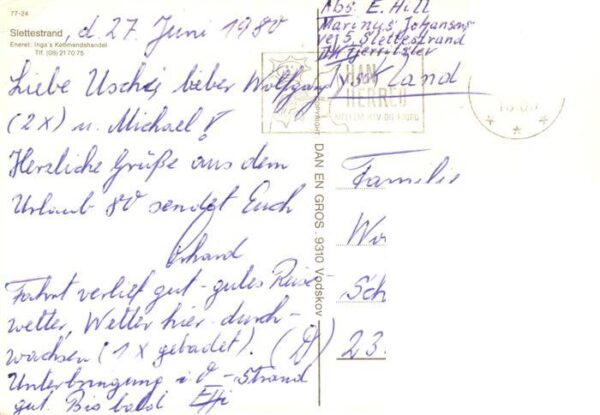 77-24
Slettestrand
Eneret: Inga's Købmandshandel
Tlf. (08) 21 70 75
, d. 27. Juni 1980
Liebe Uschi, lieber Wolfgang
(2x) u. Michael!
Herzliche Grüße aus dem
Urlaub 80 sendet Euch
Erhard
Fahrt verlief gut - gutes Reise-
wetter, Wetter hier durch-
wachsen (1 x gebadet).
Unterbringung i. O - Strand
gut. Bis bald Effi
DAN EN GROS. 9310 Vodskov
Abs. E. Hill
Marinus Johansens
vej 5, Slettestrand
Jyskland
HAN
HERRED
MELLEM HAV OG FJORD
Familie
Wo
Sch
(D) 23